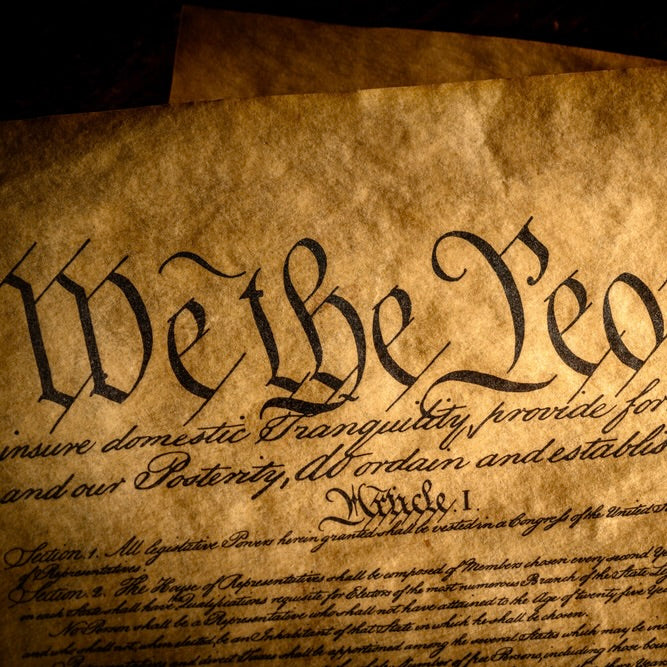 We the Peo
insure domestic Tranquility, provide for
and our Posterity, do ordain and establis
Article. I.
Section. 1. All legislative Powers herein granted shall be vested in a Congress of the United S
of Representatives.
Section. 2. The House of Representatives shall be composed of Members chosen every second Y
in each State shall have Qualifications requisite for Electors of the most numerous Branch of the State Le
No Person shall be a Representative who shall not have attained to the Age of twenty five Yea
and who shall not, when elected, be an Inhabitant of that State in which he shall be chosen.
Representatives and direct Taxes shall be apportioned among the several States which may be inc
Number of free Persons, including those bou